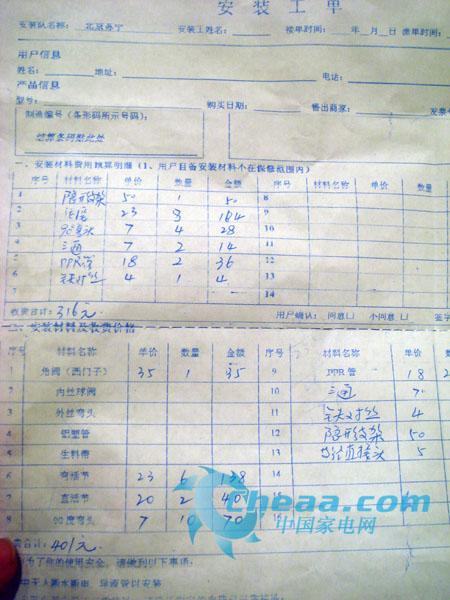 安装工单
安装队名称： 北京苏宁 安装工姓名： 接单时间： 年 月 日 派单时间：
用户信息
姓名： 地址： 电话：
产品信息
型号： 购买日期： 售出商家： 发票
制造编号（条形码所示号码）：
结算条码贴此处
一、安装材料费用预算明细（1、用户自备安装材料不在保修范围内）
序号 材料名称 单价 数量 金额 序号 材料名称 单价
1 隐形支架 50 1 50 8
2 活接 23 8 184 9
3 7 4 28 10
4 三通 7 2 14 11
5 PPR管 18 2 36 12
6 铁对丝 4 1 4 13
7 14
收费合计：316元 用户确认： 同意□ 不同意□ 签字
二、安装材料及收费价格
序号 材料名称 单价 数量 金额 序号 材料名称 单价
1 角阀（西门子） 35 1 35 9 PPR管 18 2
2 内丝球阀 10 三通 7
3 外丝弯头 11 铁对丝 4
4 铝塑管 12 隐形支架 50
5 生料带 13 直接头 5
6 弯活节 23 6 138 14
7 直活节 20 2 40
8 90度弯头 7 10 70
费合计：401元
为了您的使用安全，请做到以下事项：
cheaa.com
中国家电网